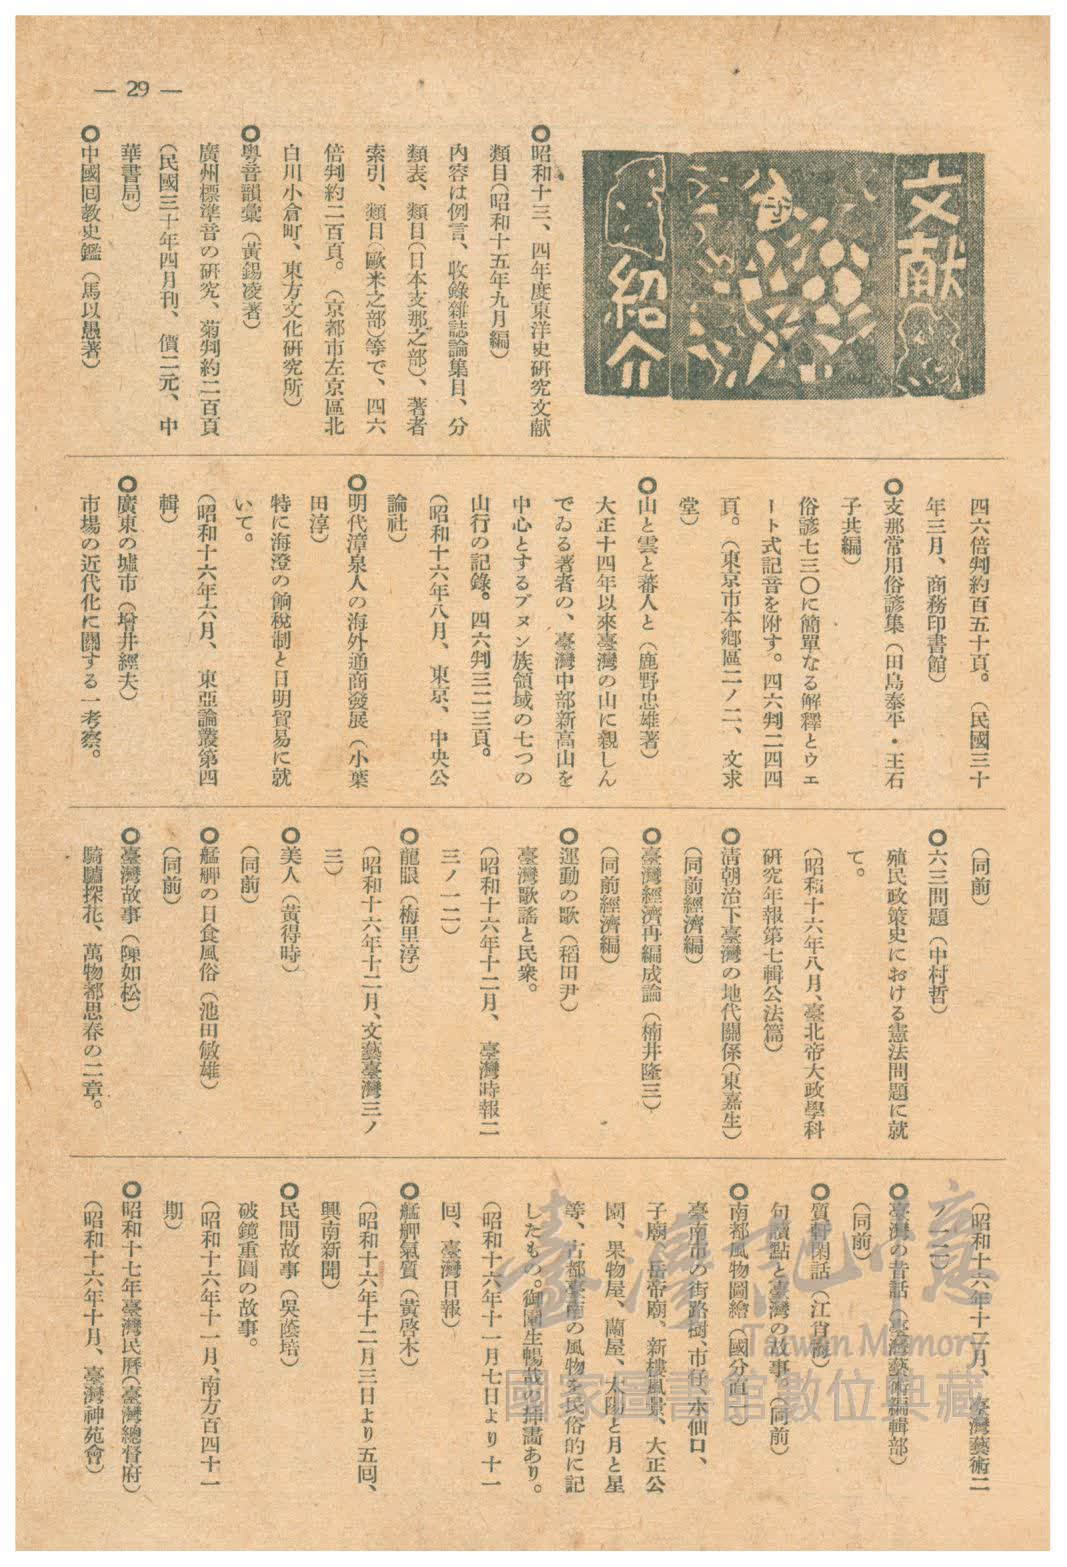 — 29 —
文献
紹介
○昭和十三、四年度東洋史研究文献
類目(昭和十五年九月編)
內容は例言、收錄雜誌論集目、分
類表、類目(日本支那之部)、著者
索引、類目(歐米之部)等で、四六
倍判約二百頁。(京都市左京區北
白川小倉町、東方文化研究所)
○粤音韻彙(黃錫凌著)
廣州標準音の研究、菊判約二百頁
(民國三十年四月刊、價二元、中
華書局)
○中國囘教史鑑(馬以愚著)
四六倍判約百五十頁。(民國三十
年三月、商務印書館)
○支那常用俗諺集(田島泰平・王石
子共編)
俗諺七三〇に簡單なる解釋とウエ
ート式記音を附す。四六判二四四
頁。(東京市本鄉區二ノ二、文求
堂)
○山と雲と蕃人と(鹿野忠雄著)
大正十四年以來臺灣の山に親しん
でゐる著者の、臺灣中部新高山を
中心とするブヌン族領域の七つの
山行の記錄。四六判三二三頁。
(昭和十六年八月、東京、中央公
論社)
○明代漳泉人の海外通商發展(小葉
田淳)
特に海澄の餉稅制と日明貿易に就
いて。
(昭和十六年六月、東亞論叢第四
輯)
○廣東の墟市(增井經夫)
市場の近代化に關する一考察。
(同前)
○六三問題(中村哲)
殖民政策史における憲法問題に就
て。
(昭和十六年八月、臺北帝大政學科
硏究年報第七輯公法篇)
○清朝治下臺灣の地代關係(東嘉生)
(同前經濟編)
○臺灣經濟再編成論(楠井隆三)
(同前經濟編)
○運動の歌(稻田尹)
臺灣歌謠と民衆。
(昭和十六年十二月、臺灣時報二
三ノ一二)
○龍眼(梅里淳)
(昭和十六年十二月、文藝臺灣三ノ
三)
○美人(黃得時)
(同前)
○艋舺の日食風俗(池田敏雄)
(同前)
○臺灣故事(陳如松)
騎驢探花、萬物都思春の二章。
(昭和十六年十二月、臺灣藝術二
ノ一二)
○臺灣の昔話(臺灣藝術編輯部)
(同前)
○質軒閑話(江肖梅)
句讀點と臺灣の故事(同前)
○南都風物圖繪(國分直一)
臺南市の街路樹、市仔、水仙口、
子廟、岳帝廟、新樓風景、大正公
園、果物屋、蘭屋、太陽と月と星
等、古都臺南の風物を民俗的に記
したもの。御園生暢哉の挿畫あり。
(昭和十六年十一月七日より十一
囘、臺灣日報)
○艋舺氣質(黃啓木)
(昭和十六年十二月三日より五囘、
興南新聞)
○民間故事(吳蔭培)
破鏡重圓の故事。
(昭和十六年十一月、南方百四十一
期)
○昭和十七年臺灣民曆(臺灣總督府)
(昭和十六年十月、臺灣神苑會)
臺灣記憶
Taiwan Memory
國家圖書館數位典藏